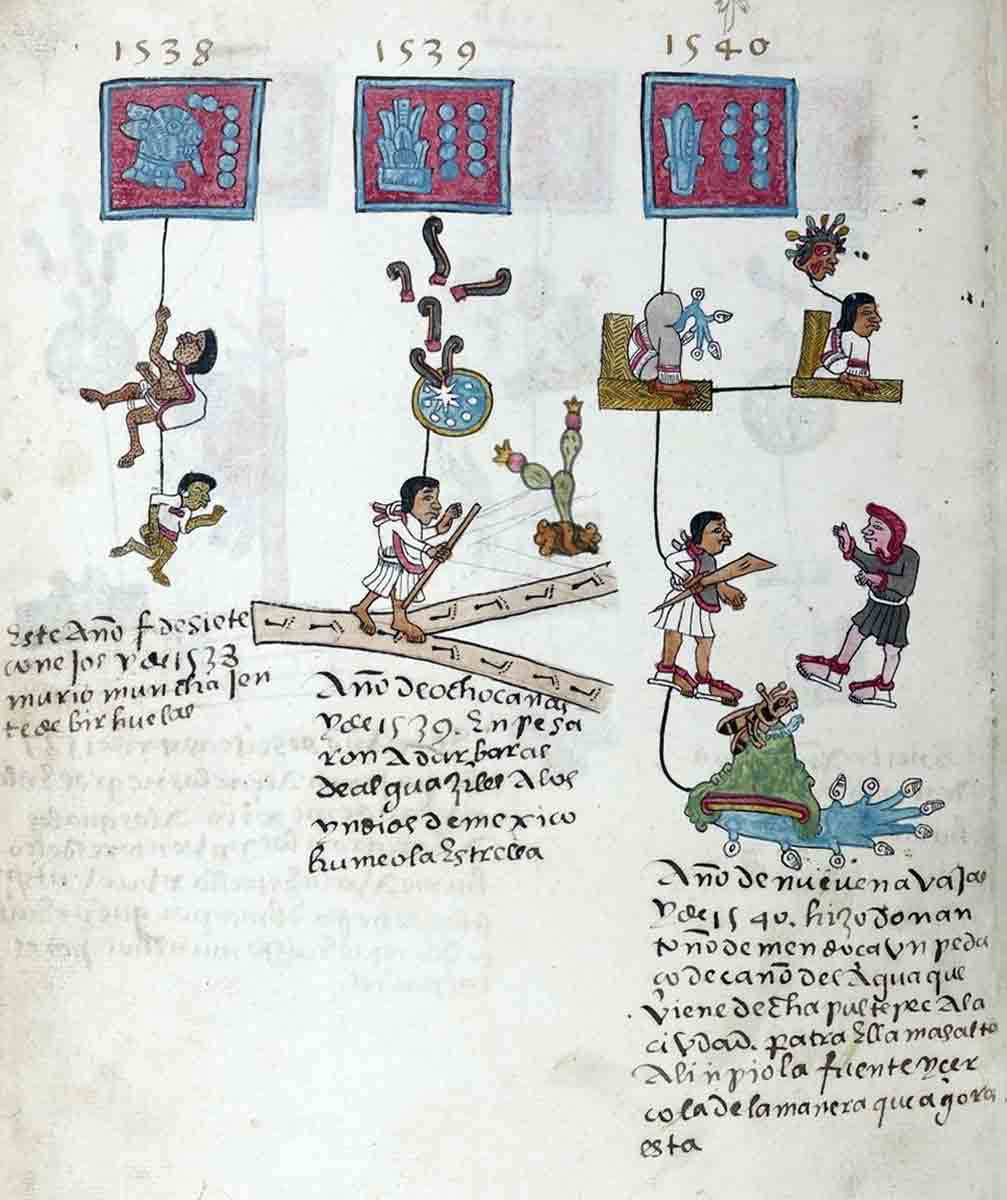 1538
1539
1540
Este Año f de siete
conejos y de 1538
murio muncha jen
te de birhuelas
Año de ocho cañas
y de 1539. Enpesa
ron A dar baras
de alguaziles A los
yndios de mexico
humeo la Estrella
Año de nueve navajas
y de 1540. hizo don an
toño de mendoca vn peda
co de caño del Agua que
viene de chapultepec A la
ciudad. para ella mas alto
Alinpio la fuente y cer
co la de la manera que agora
esta